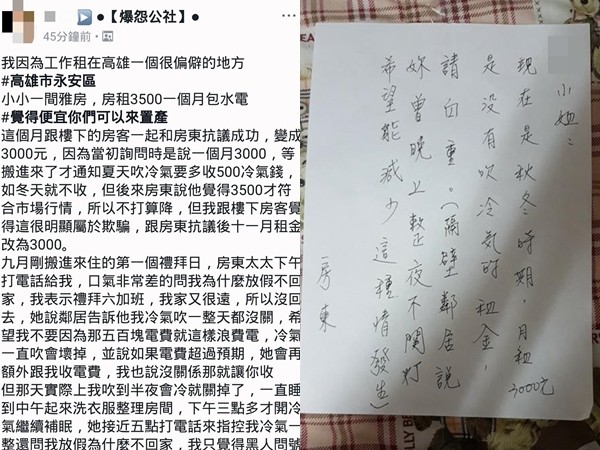 ●【爆怨公社】●
45分鐘前
我因為工作租在高雄一個很偏僻的地方
#高雄市永安區
小小一間雅房，房租3500一個月包水電
#覺得便宜你們可以來置產
這個月跟樓下的房客一起和房東抗議成功，變成
3000元，因為當初詢問時是說一個月3000，等
搬進來了才通知夏天吹冷氣要多收500冷氣錢，
如冬天就不收，但後來房東說他覺得3500才符
合市場行情，所以不打算降，但我跟樓下房客覺
得這很明顯屬於欺騙，跟房東抗議後十一月租金
改為3000。
九月剛搬進來住的第一個禮拜日，房東太太下午
打電話給我，口氣非常差的問我為什麼放假不回
家，我表示禮拜六加班，我家又很遠，所以沒回
去，她說鄰居告訴他我冷氣吹一整天都沒關，希
望我不要因為那五百塊電費就這樣浪費電，冷氣
一直吹會壞掉，並說如果電費超過預期，她會再
額外跟我收電費，我也說沒關係那就讓你收
但那天實際上我吹到半夜會冷就關掉了，一直睡
到中午起來洗衣服整理房間，下午三點多才開冷
氣繼續補眠，她接近五點打電話來指控我冷氣一
整還問我放假為什麼不回家，我只覺得黑人問號
小姐：
現在是秋冬時期，月租3000元
是没有吹冷気的租金，
請自重。（隔壁鄰居説
妳曾晚上整夜不関灯
希望能減少這種情發生）
房東